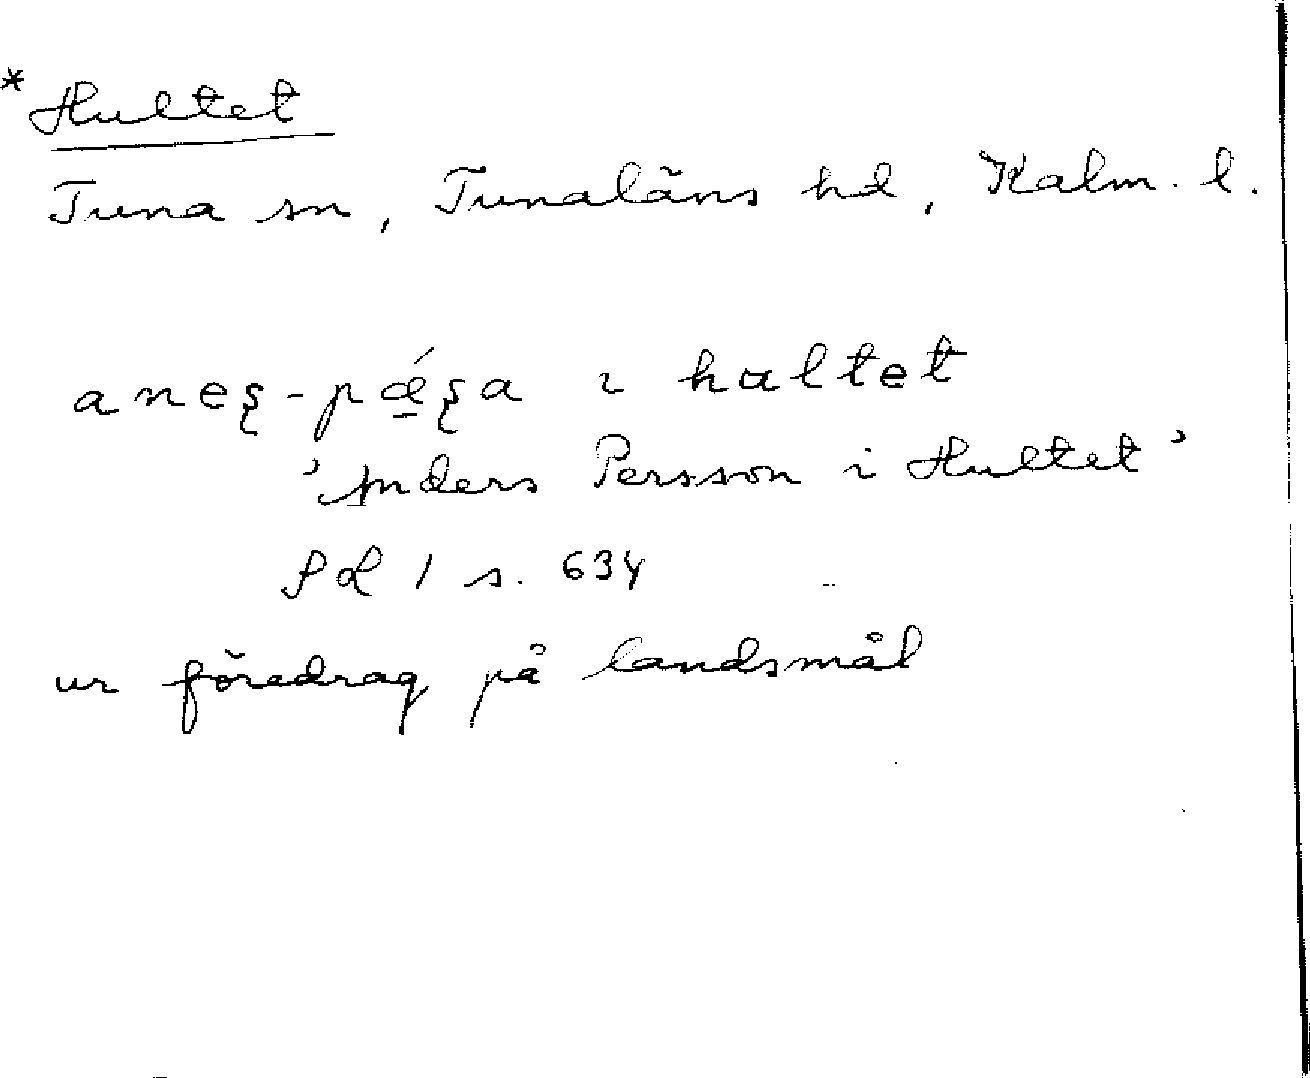 * Hultet
Tuna sn, Tunaläns hd, Kalm. l.
i hultet
'Anders Persson i Hultet'
1 s. 634
ur föredrag på landsmål